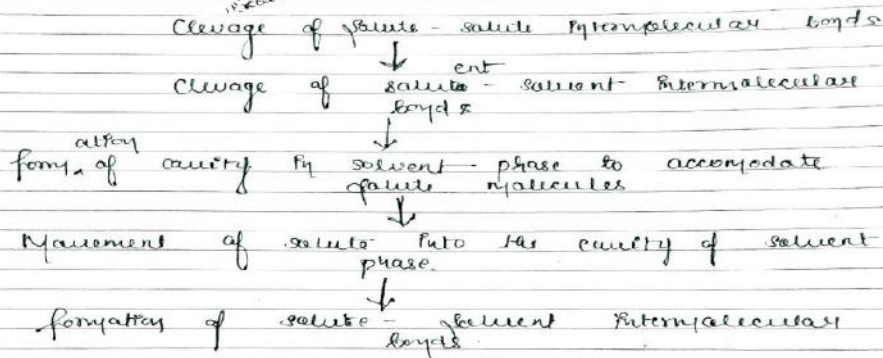 Clevage of solute - solute intermolecular bonds
Clevage of solutent - solvent intermolecular
bonds
formation of cavity in solvent - phase to accomodate
solute molecules
Movement of solute into the cavity of solvent
phase.
formation of solute - solvent intermolecular
bonds